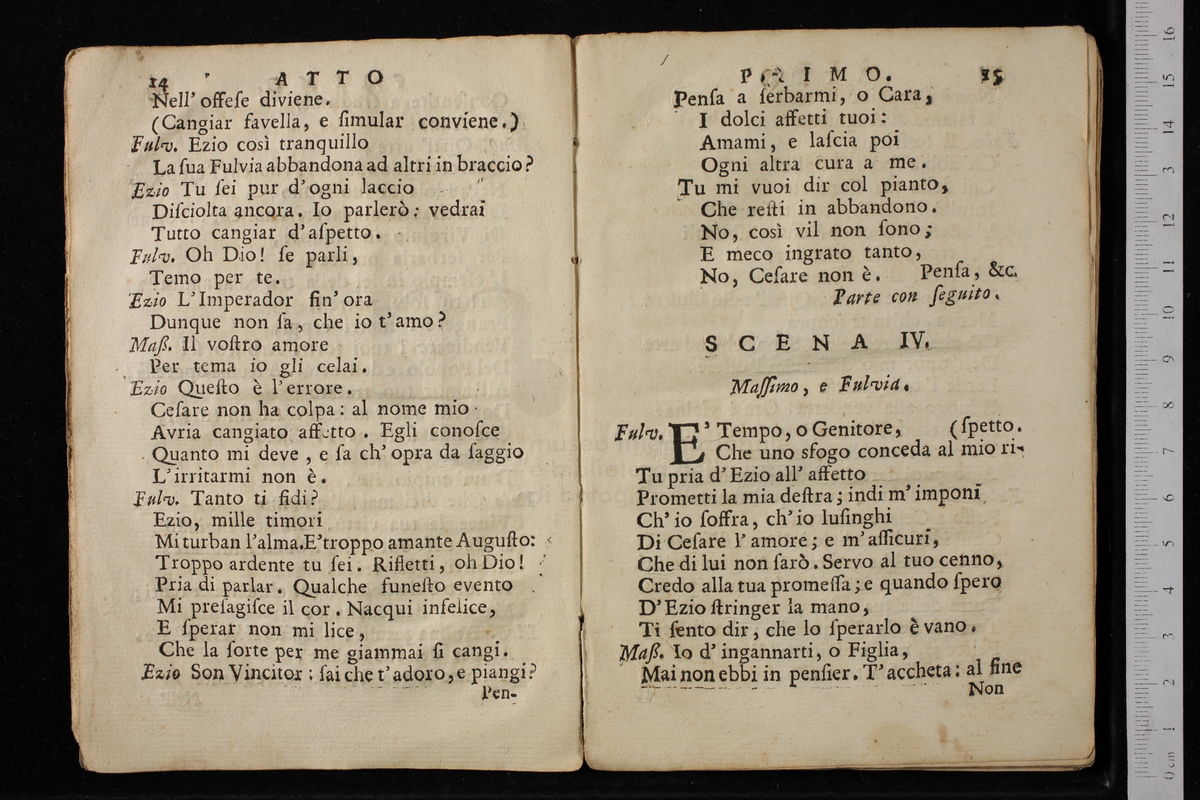 14 ATTO
Nell' offeſe diviene.
(Cangiar favella, e ſimular conviene.)
Fulv. Ezio così tranquillo
La ſua Fulvia abbandona ad altri in braccio?
Ezio Tu ſei pur d'ogni laccio
Diſciolta ancora. Io parlerò: vedrai
Tutto cangiar d'aſpetto.
Fulv. Oh Dio! ſe parli,
Temo per te.
Ezio L'Imperador fin' ora
Dunque non ſa, che io t'amo?
Maß. Il voſtro amore
Per tema io gli celai.
Ezio Queſto è l'errore.
Ceſare non ha colpa: al nome mio
Avria cangiato affetto. Egli conoſce
Quanto mi deve, e ſa ch'opra da ſaggio
L'irritarmi non è.
Fulv. Tanto ti fidi?
Ezio, mille timori
Mi turban l'alma. E'troppo amante Auguſto:
Troppo ardente tu ſei. Rifletti, oh Dio!
Pria di parlar. Qualche funeſto evento
Mi preſagiſce il cor. Nacqui infelice,
E ſperar non mi lice,
Che la ſorte per me giammai ſi cangi.
Ezio Son Vincitor; ſai che t'adoro, e piangi?
Pen-
PRIMO. 15
Penſa a ſerbarmi, o Cara,
I dolci affetti tuoi:
Amami, e laſcia poi
Ogni altra cura a me.
Tu mi vuoi dir col pianto,
Che reſti in abbandono.
No, così vil non ſono;
E meco ingrato tanto,
No, Ceſare non è. Penſa, &c.
Parte con ſeguito.
SCENA IV.
Maſſimo, e Fulvia.
Fulv. E' Tempo, o Genitore, (ſpetto.
Che uno sfogo conceda al mio ri-
Tu pria d'Ezio all' affetto
Prometti la mia deſtra; indi m'imponi
Ch' io ſoffra, ch'io luſinghi
Di Ceſare l'amore; e m'aſſicuri,
Che di lui non ſarò. Servo al tuo cenno,
Credo alla tua promeſſa; e quando ſpero
D'Ezio ſtringer la mano,
Ti ſento dir, che lo ſperarlo è vano.
Maß. Io d'ingannarti, o Figlia,
Mai non ebbi in penſier. T'accheta: al fine
Non
0 cm 1 2 3 4 5 6 7 8 9 10 11 12 13 14 15 16